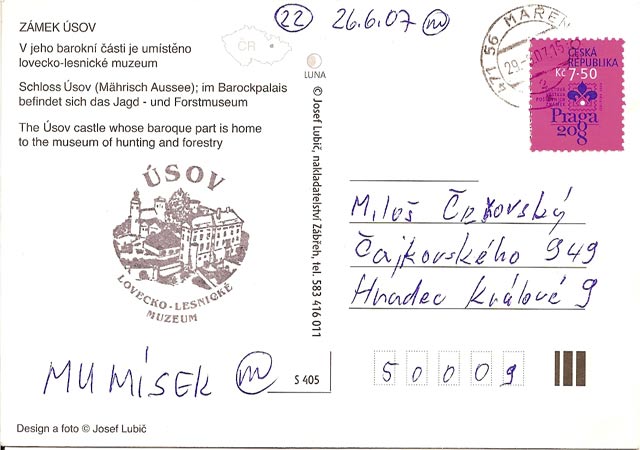 22 26.6.07 m
ZÁMEK ÚSOV
V jeho barokní části je umístěno
lovecko-lesnické muzeum
Schloss Úsov (Mährisch Aussee); im Barockpalais
befindet sich das Jagd - und Forstmuseum
The Úsov castle whose baroque part is home
to the museum of hunting and forestry
ČR
LUNA
© Josef Lubič, nakladatelství Zábřeh, tel. 583 416 011
471 56 MAŘEN
ČESKÁ
REPUBLIKA
Kč 7·50
Praga
2008
ÚSOV
LOVECKO-LESNICKÉ
MUZEUM
Miloš
Čajkovského 949
Hradec Králové 9
50009
MUMÍSEK m
S 405
Design a foto © Josef Lubič